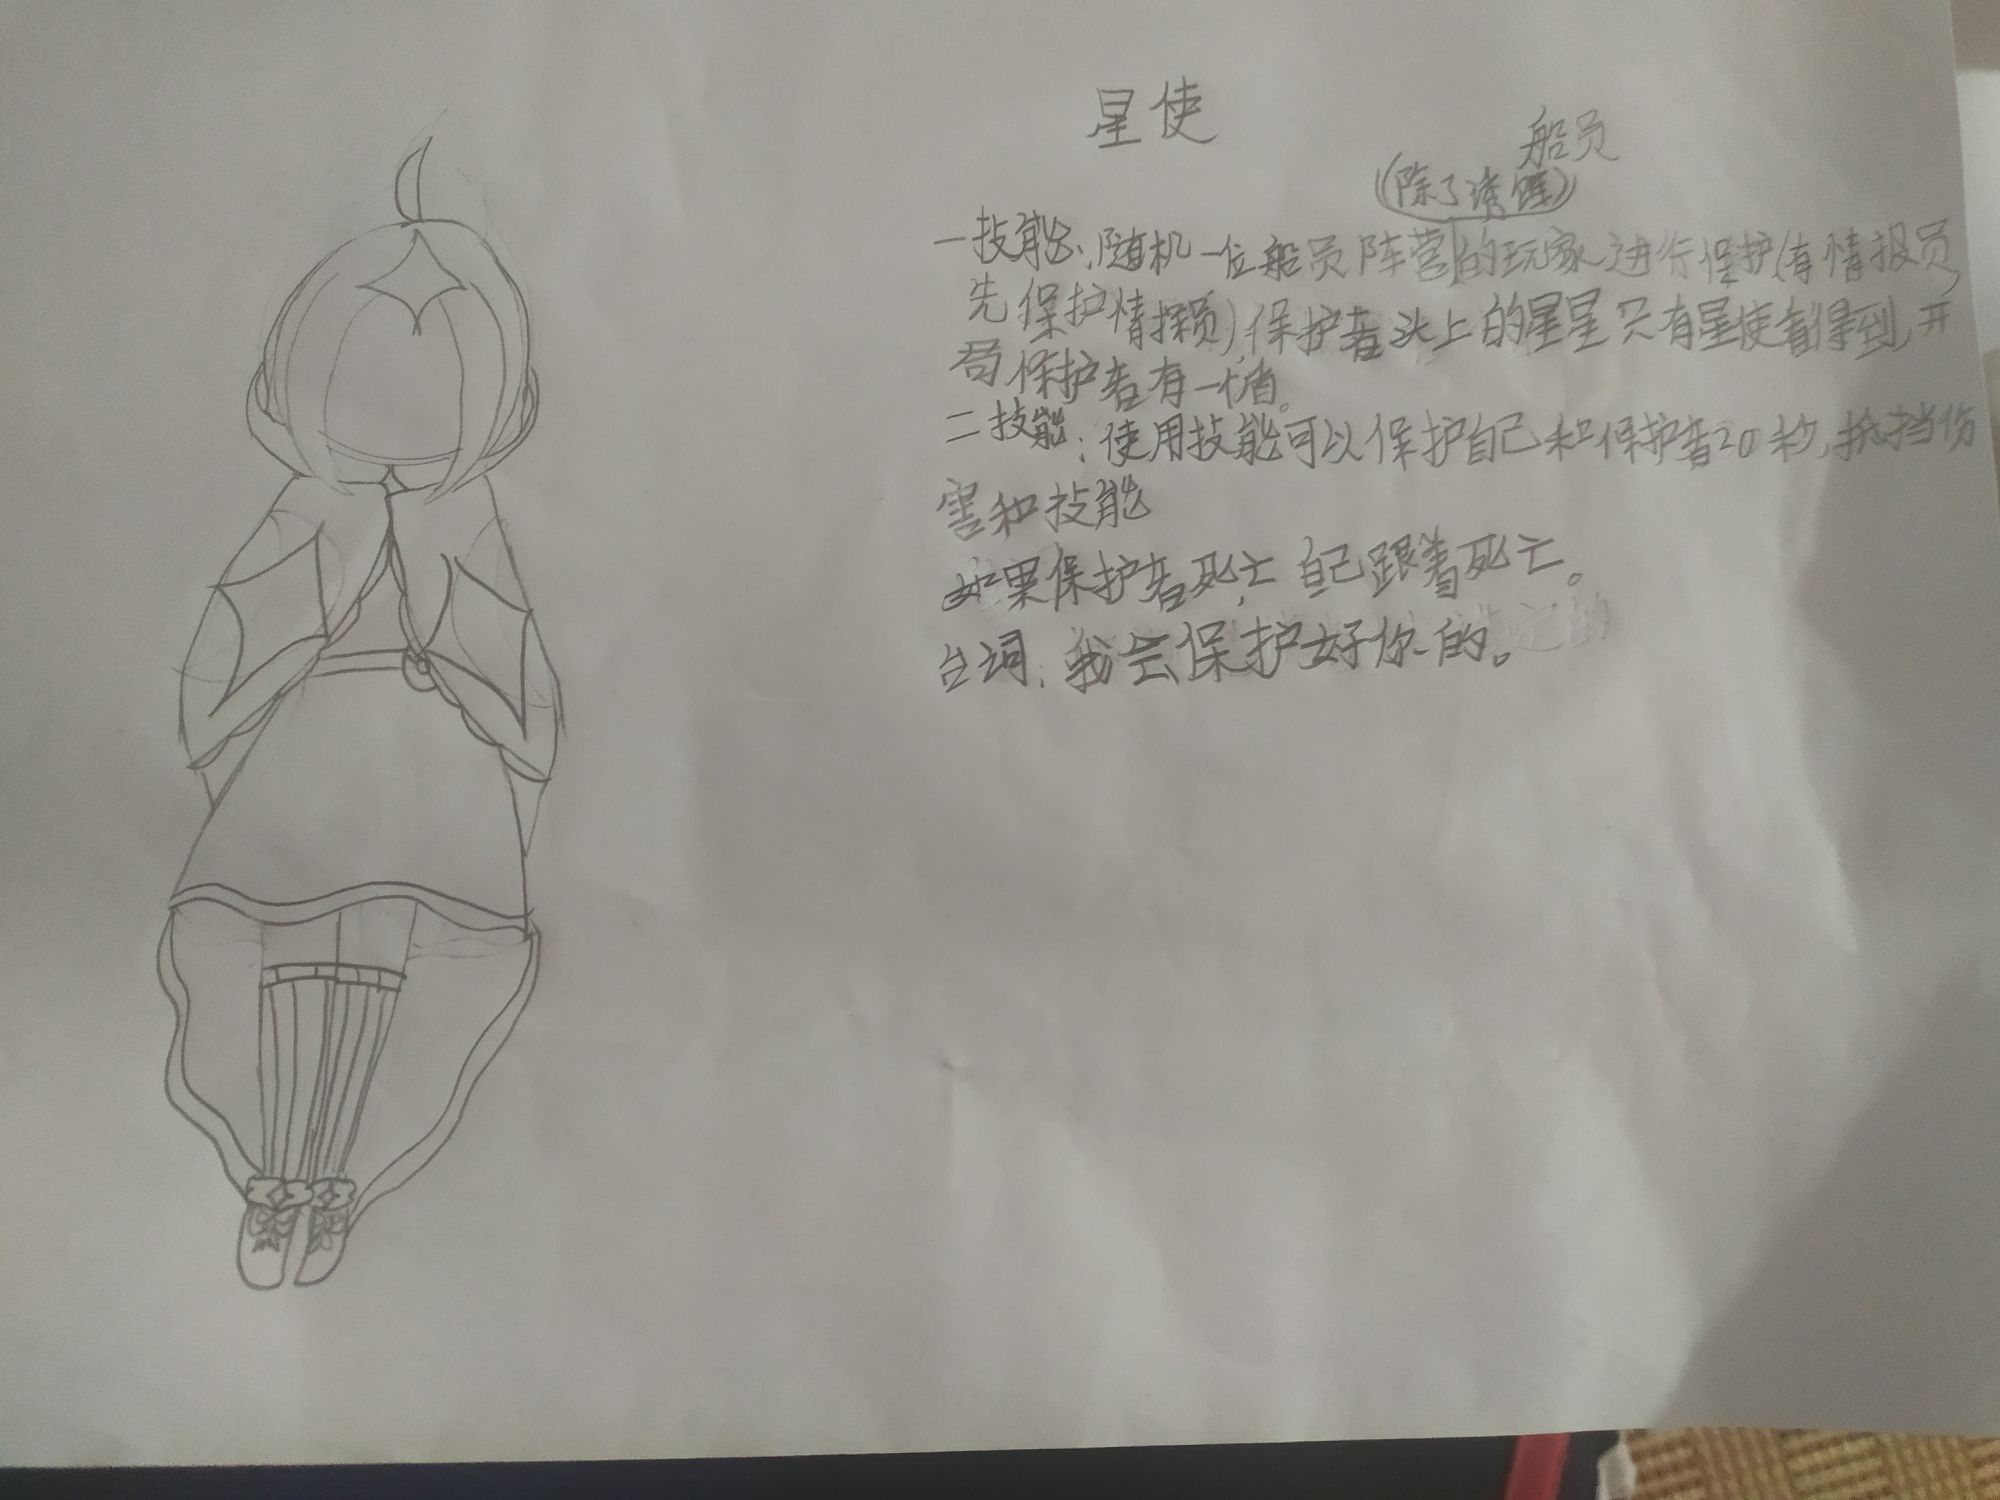 星使
船员
(除了诱饵)
一技能：随机一位船员阵营的玩家进行保护(有情报员
先保护情报员)保护者头上的星星只有星使看得到，开
局保护者有一个盾。
二技能：使用技能可以保护自己和保护者20秒，抵挡伤
害和技能
如果保护者死亡自己跟着死亡。
台词：我会保护好你的。